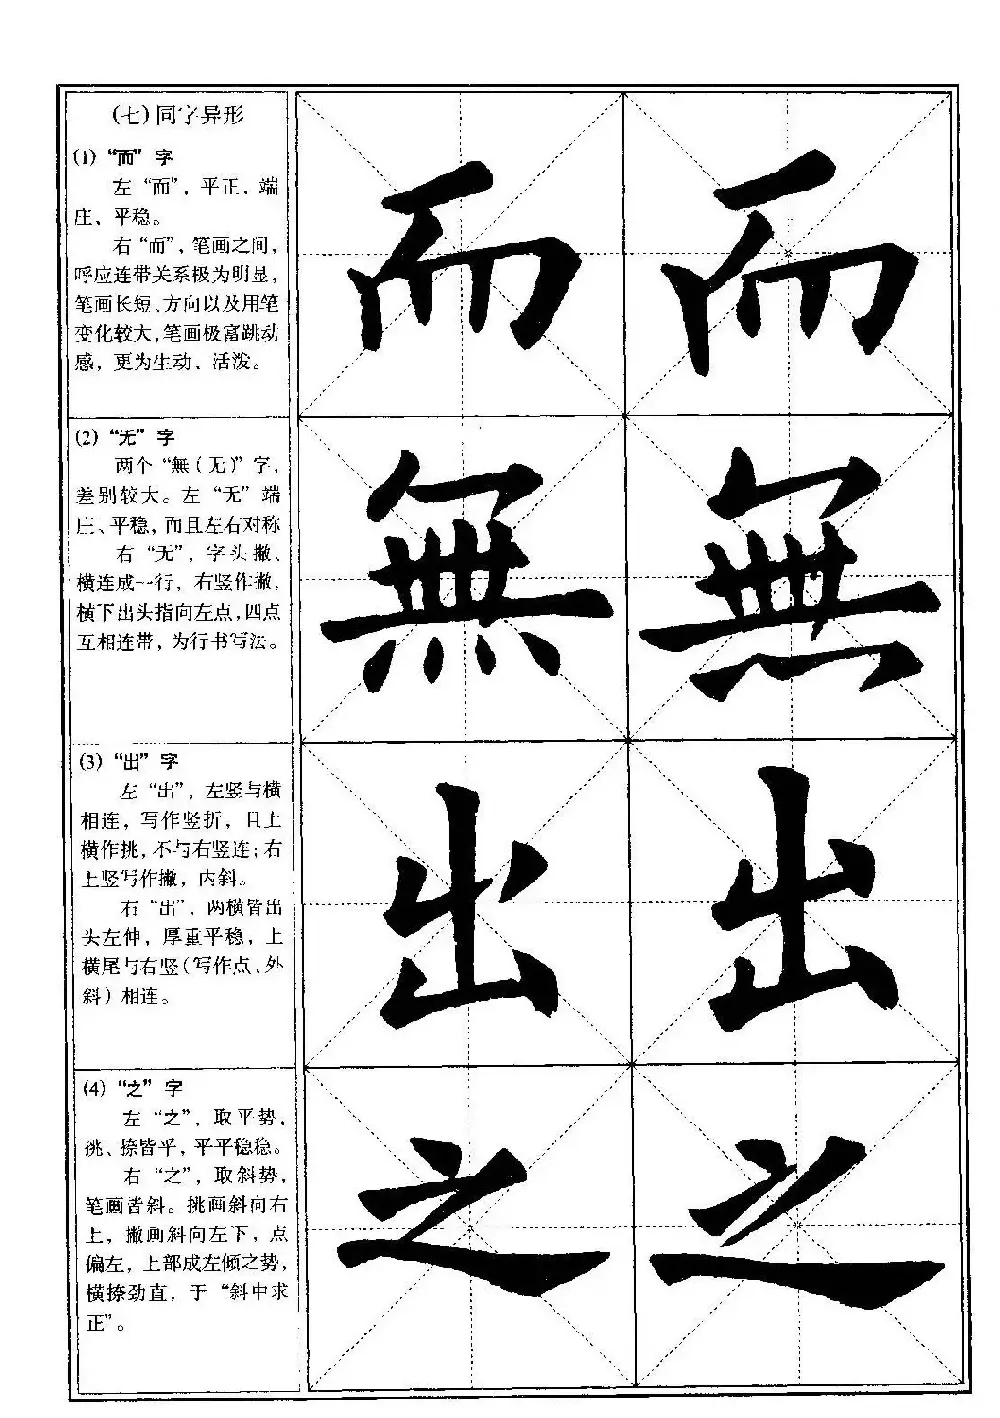 (七)同字异形
(1) “而” 字
左 “而”，平正、端
庄、平稳。
右 “而”，笔画之间，
呼应连带关系极为明显，
笔画长短、方向以及用笔
变化较大，笔画极富跳动
感，更为生动、活泼。
而 而
(2) “无” 字
两个 “無(无)” 字，
差别较大。左 “无” 端
庄、平稳，而且左右对称
右 “无”，字头撇、
横连成一行，右竖作撇，
横下出头指向左点，四点
互相连带，为行书写法。
無 無
(3) “出” 字
左 “出”，左竖与横
相连，写作竖折，且上
横作挑，不与右竖连；右
上竖写作撇，内斜。
右 “出”，两横皆出
头左伸，厚重平稳，上
横尾与右竖(写作点、外
斜) 相连。
出 出
(4) “之” 字
左 “之”，取平势，
挑、捺皆平，平平稳稳。
右 “之”，取斜势，
笔画皆斜。挑画斜向右
上，撇画斜向左下，点
偏左，上部成左倾之势，
横捺劲直，于 “斜中求
正”。
之 之